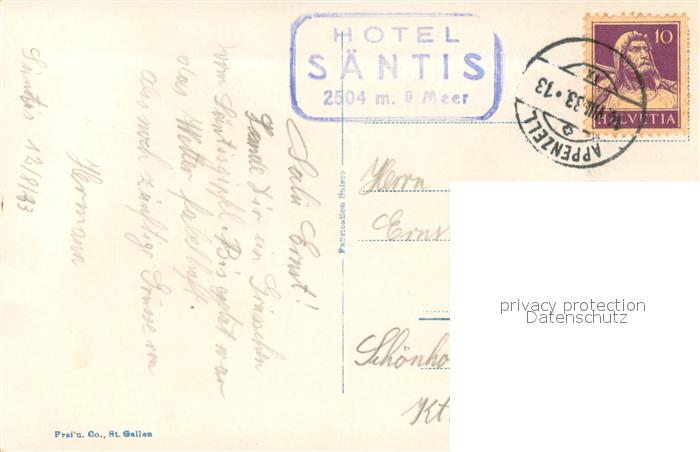 HOTEL
SÄNTIS
2504 m. ü Meer
10
HELVETIA
APPENZELL
VIII.33.-13
Säntis 12/8/33
Salü Ernst!
Sende Dir ein Grüsschen
vom Säntisgipfel. Bis jetzt war
das Wetter fabelhaft.
Also noch zünftige Grüsse von
Hermann
Fabrication Suisse
Herrn
Ernst
Schönho
Kt
privacy protection
Datenschutz
Frei u. Co., St. Gallen